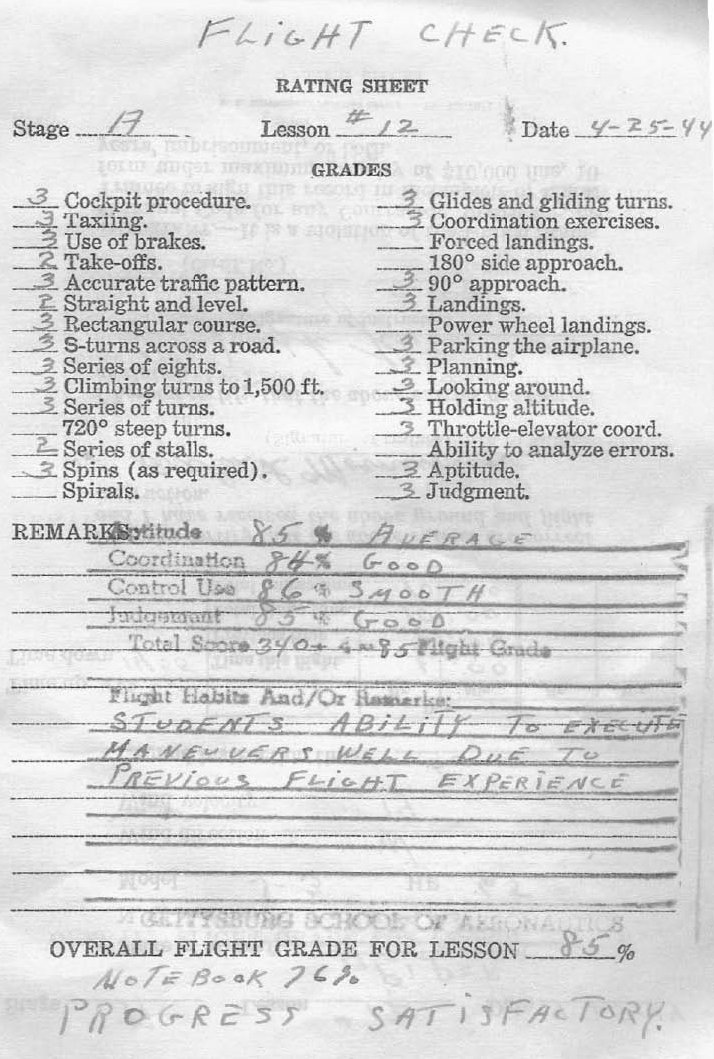 FLiGHT CHECK.
RATING SHEET
Stage A Lesson #12 Date 4-25-44
GRADES
3 Cockpit procedure.
3 Taxiing.
3 Use of brakes.
2 Take-offs.
3 Accurate traffic pattern.
2 Straight and level.
3 Rectangular course.
3 S-turns across a road.
3 Series of eights.
3 Climbing turns to 1,500 ft.
3 Series of turns.
720° steep turns.
2 Series of stalls.
3 Spins (as required).
Spirals.
3 Glides and gliding turns.
3 Coordination exercises.
Forced landings.
180° side approach.
3 90° approach.
3 Landings.
Power wheel landings.
3 Parking the airplane.
3 Planning.
3 Looking around.
3 Holding altitude.
3 Throttle-elevator coord.
Ability to analyze errors.
3 Aptitude.
3 Judgment.
REMARKS: Aptitude 85 % AVERAGE
Coordination 84% GOOD
Control Use 86% SMOOTH
Judgement 85% GOOD
Total Score 340 ÷ 4 = 85 Flight Grade
Flight Habits And/Or Remarks:
STUDENTS ABILITY TO EXECUTE
MANEUVERS WELL DUE TO
PREVIOUS FLIGHT EXPERIENCE
GETTYSBURG SCHOOL OF AERONAUTICS
OVERALL FLIGHT GRADE FOR LESSON 85 %
NOTEBOOK 76%
PROGRESS - SATISFACTORY.